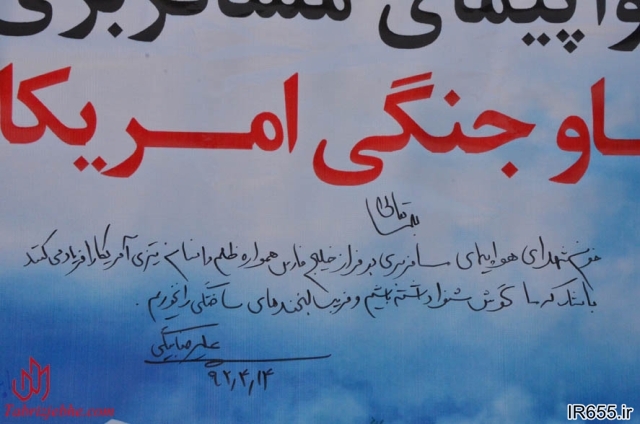 واپیمای مسافربری
ناو جنگی امریکا
بسمه تعالی
خون شهدای هواپیمای مسافربری بر فراز خلیج فارس همواره ظلم و آمریکا را فریاد می‌کند
باشد که ما گوش شنوا داشته باشیم و فریب لبخندهای ساختگی را نخوریم.
۹۲،۴،۱۴
Zahrapekhe.com
IR655.ir